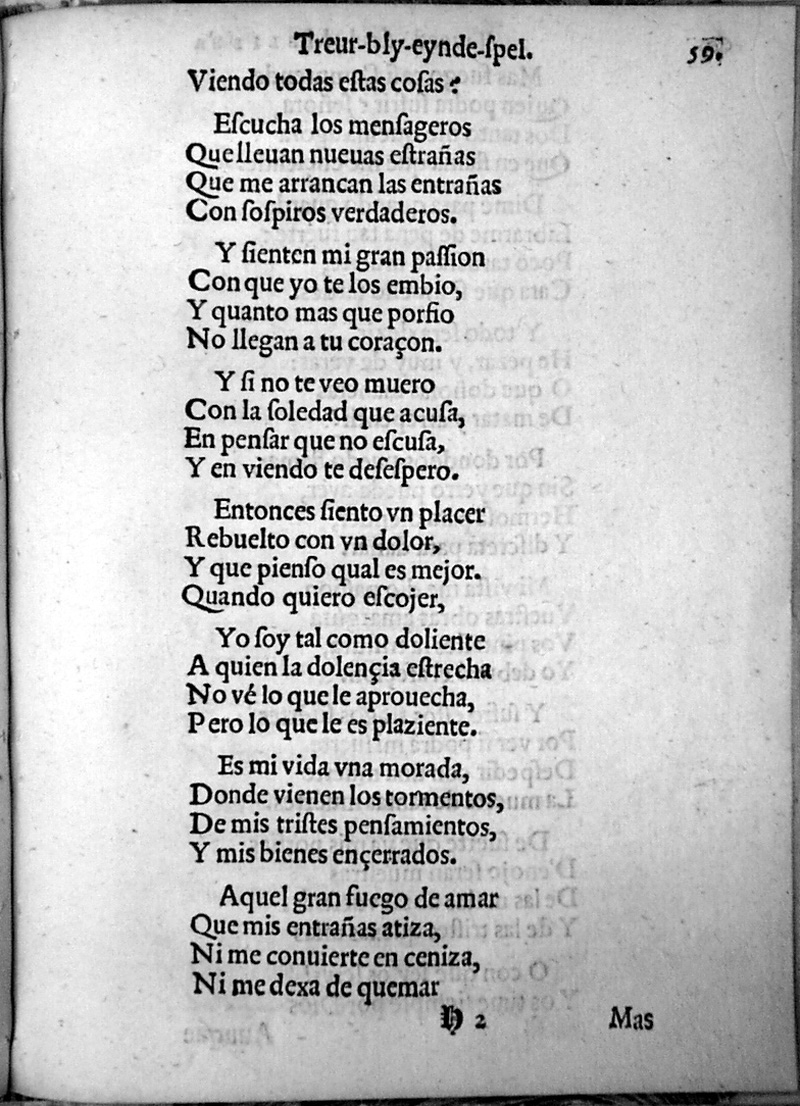 Treur-bly-eynde-ſpel. 59.
Viendo todas eſtas coſas?
Eſcucha los menſageros
Que lleuan nueuas eſtrañas
Que me arrancan las entrañas
Con ſoſpiros verdaderos.
Y ſienten mi gran paſſion
Con que yo te los embio,
Y quanto mas que porfio
No llegan a tu coraçon.
Y ſi no te veo muero
Con la ſoledad que acuſa,
En penſar que no eſcuſa,
Y en viendo te deſeſpero.
Entonces ſiento vn placer
Rebuelto con vn dolor,
Y que pienſo qual es mejor.
Quando quiero eſcojer,
Yo ſoy tal como doliente
A quien la dolençia eſtrecha
No vé lo que le aprouecha,
Pero lo que le es plaziente.
Es mi vida vna morada,
Donde vienen los tormentos,
De mis triſtes penſamientos,
Y mis bienes ençerrados.
Aquel gran fuego de amar
Que mis entrañas atiza,
Ni me conuierte en ceniza,
Ni me dexa de quemar
H 2 Mas